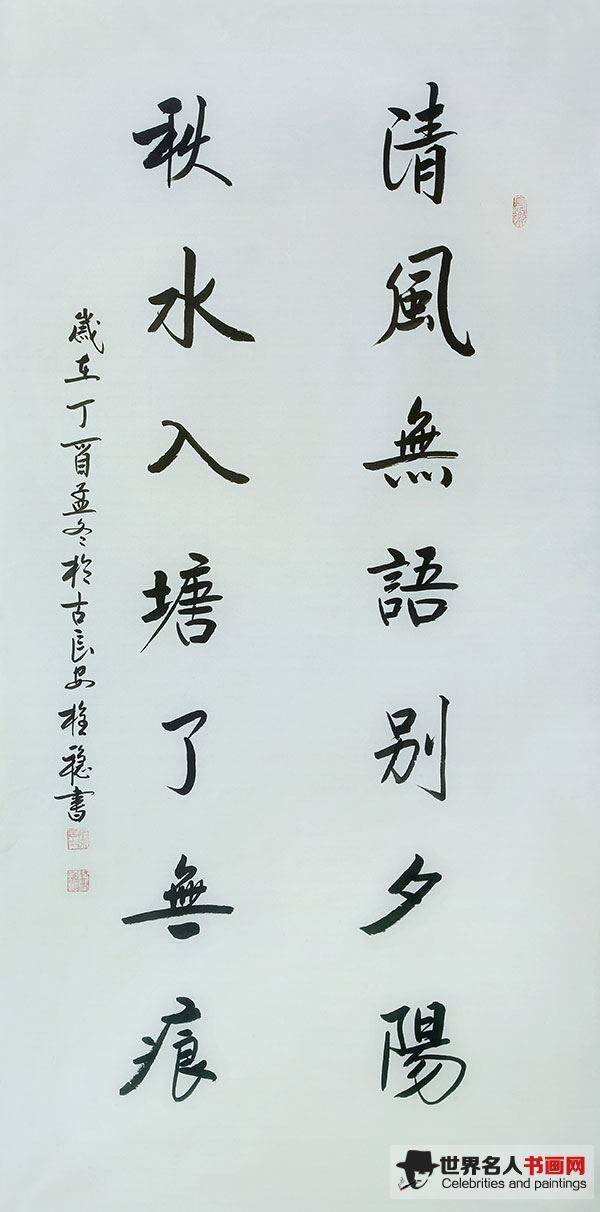 清風無語別夕陽
秋水入塘了無痕
歲在丁酉孟冬於古長安桂穩書
世界名人书画网
Celebrities and paintings